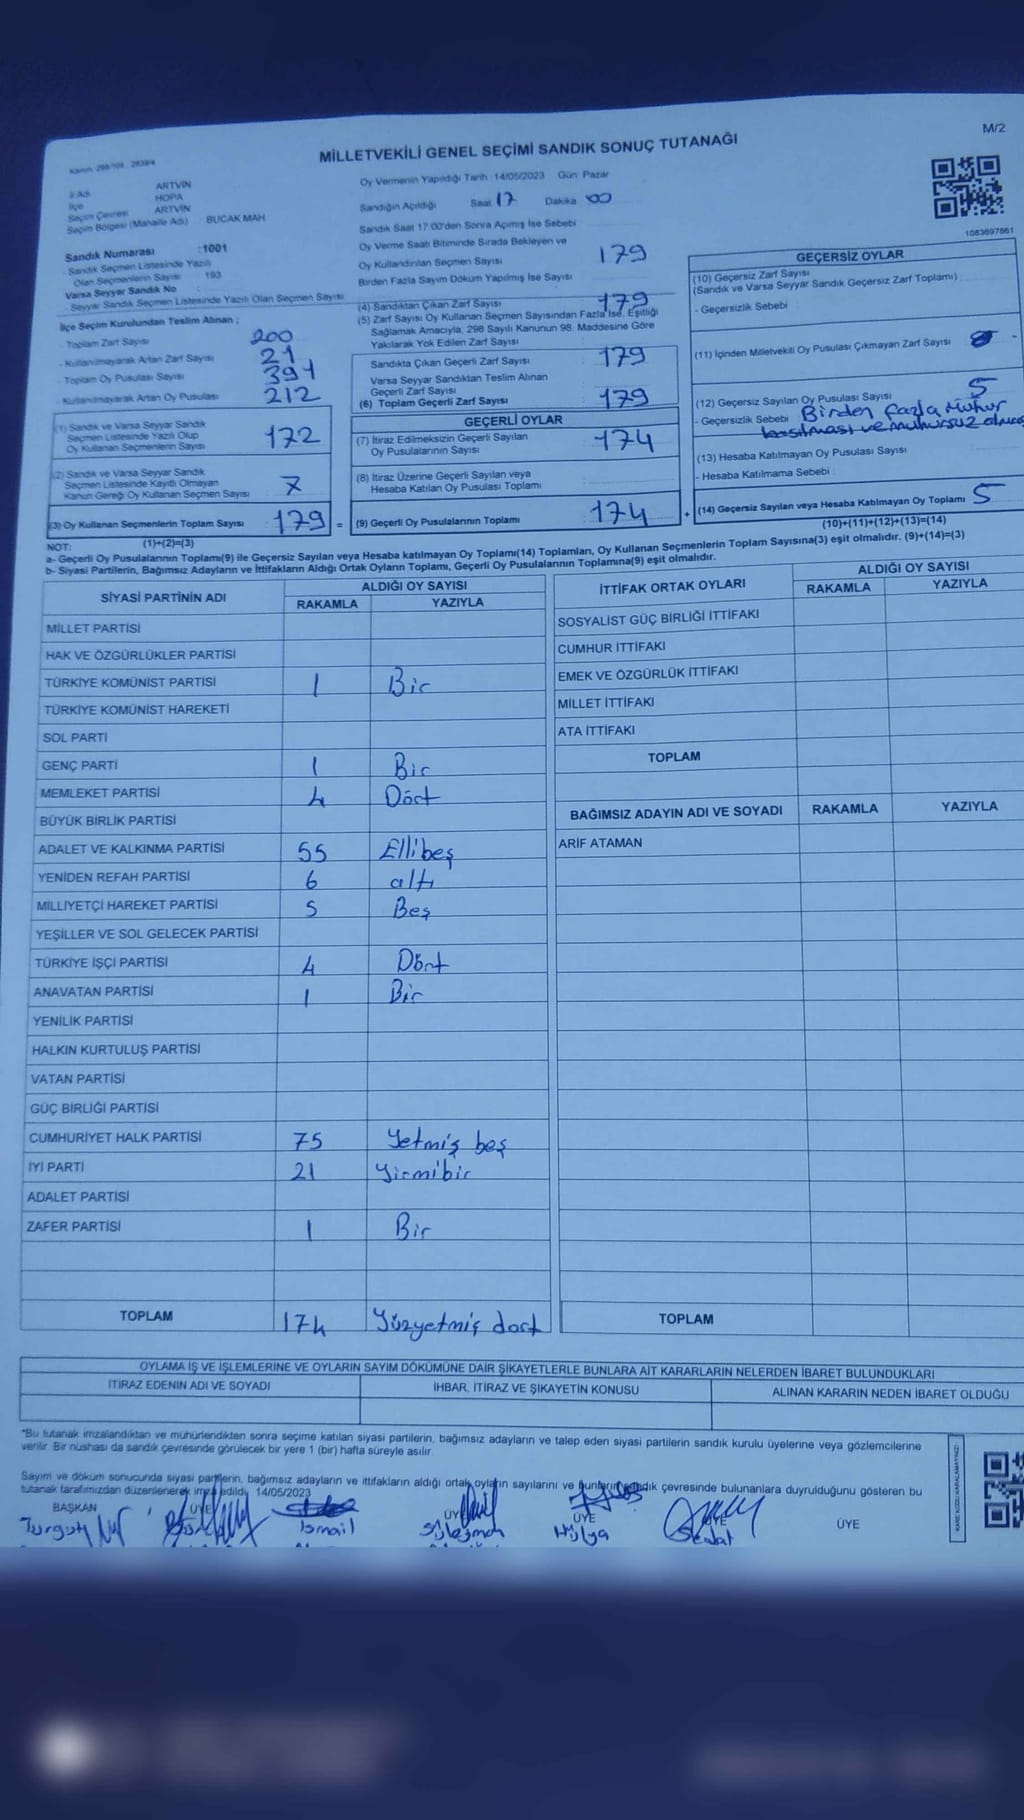 M/2
MİLLETVEKİLİ GENEL SEÇİMİ SANDIK SONUÇ TUTANAĞI
İl Adı ARTVİN
İlçe HOPA
Seçim Çevresi ARTVİN
Seçim Bölgesi (Mahalle Adı) BUCAK MAH
Sandık Numarası :1001
Sandık Seçmen Listesinde Yazılı
Olan Seçmenlerin Sayısı : 193
Varsa Seyyar Sandık No :
- Seyyar Sandık Seçmen Listesinde Yazılı Olan Seçmen Sayısı
İlçe Seçim Kurulundan Teslim Alınan ;
- Toplam Zarf Sayısı 200
- Kullanılmayarak Artan Zarf Sayısı 21
- Toplam Oy Pusulası Sayısı 391
- Kullanılmayarak Artan Oy Pusulası 212
(1) Sandık ve Varsa Seyyar Sandık
Seçmen Listesinde Yazılı Olup
Oy Kullanan Seçmenlerin Sayısı 172
(2) Sandık ve Varsa Seyyar Sandık
Seçmen Listesinde Kayıtlı Olmayan
Kanun Gereği Oy Kullanan Seçmen Sayısı 7
(3) Oy Kullanan Seçmenlerin Toplam Sayısı 179 =
(1)+(2)=(3)
Oy Vermenin Yapıldığı Tarih :14/05/2023 Gün Pazar
Sandığın Açıldığı Saat 17 Dakika 00
Sandık Saat 17:00'den Sonra Açımış İse Sebebi
Oy Verme Saati Bitiminde Sırada Bekleyen ve
Oy Kullandırılan Seçmen Sayısı 179
Birden Fazla Sayım Döküm Yapılmış İse Sayısı
(4) Sandıktan Çıkan Zarf Sayısı 179
(5) Zarf Sayısı Oy Kullanan Seçmen Sayısından Fazla İse, Eşitliği
Sağlamak Amacıyla, 298 Sayılı Kanunun 98. Maddesine Göre
Yakılarak Yok Edilen Zarf Sayısı
Sandıkta Çıkan Geçerli Zarf Sayısı 179
Varsa Seyyar Sandıktan Teslim Alınan
Geçerli Zarf Sayısı
(6) Toplam Geçerli Zarf Sayısı 179
GEÇERLİ OYLAR
(7) İtiraz Edilmeksizin Geçerli Sayılan
Oy Pusulalarının Sayısı 174
(8) İtiraz Üzerine Geçerli Sayılan veya
Hesaba Katılan Oy Pusulası Toplamı
(9) Geçerli Oy Pusulalarının Toplamı 174 +
1083697861
GEÇERSİZ OYLAR
(10) Geçersiz Zarf Sayısı
(Sandık ve Varsa Seyyar Sandık Geçersiz Zarf Toplamı)
- Geçersizlik Sebebi :
(11) İçinden Milletvekili Oy Pusulası Çıkmayan Zarf Sayısı
(12) Geçersiz Sayılan Oy Pusulası Sayısı 5
- Geçersizlik Sebebi : Birden fazla mühür
basılması ve mühürsüz
(13) Hesaba Katılmayan Oy Pusulası Sayısı
- Hesaba Katılmama Sebebi :
(14) Geçersiz Sayılan veya Hesaba Katılmayan Oy Toplamı 5
(10)+(11)+(12)+(13)=(14)
NOT:
a- Geçerli Oy Pusulalarının Toplamı(9) ile Geçersiz Sayılan veya Hesaba katılmayan Oy Toplamı(14) Toplamları, Oy Kullanan Seçmenlerin Toplam Sayısına(3) eşit olmalıdır. (9)+(14)=(3)
b- Siyasi Partilerin, Bağımsız Adayların ve İttifakların Aldığı Ortak Oyların Toplamı, Geçerli Oy Pusulalarının Toplamına(9) eşit olmalıdır.
SİYASİ PARTİNİN ADI ALDIĞI OY SAYISI
RAKAMLA YAZIYLA
MİLLET PARTİSİ
HAK VE ÖZGÜRLÜKLER PARTİSİ
TÜRKİYE KOMÜNİST PARTİSİ 1 Bir
TÜRKİYE KOMÜNİST HAREKETİ
SOL PARTİ
GENÇ PARTİ 1 Bir
MEMLEKET PARTİSİ 4 Dört
BÜYÜK BİRLİK PARTİSİ
ADALET VE KALKINMA PARTİSİ 55 Ellibeş
YENİDEN REFAH PARTİSİ 6 altı
MİLLİYETÇİ HAREKET PARTİSİ 5 Beş
YEŞİLLER VE SOL GELECEK PARTİSİ
TÜRKİYE İŞÇİ PARTİSİ 4 Dört
ANAVATAN PARTİSİ 1 Bir
YENİLİK PARTİSİ
HALKIN KURTULUŞ PARTİSİ
VATAN PARTİSİ
GÜÇ BİRLİĞİ PARTİSİ
CUMHURİYET HALK PARTİSİ 75 Yetmiş beş
İYİ PARTİ 21 Yirmibir
ADALET PARTİSİ
ZAFER PARTİSİ 1 Bir
TOPLAM 174 Yüzyetmiş dört
İTTİFAK ORTAK OYLARI ALDIĞI OY SAYISI
RAKAMLA YAZIYLA
SOSYALİST GÜÇ BİRLİĞİ İTTİFAKI
CUMHUR İTTİFAKI
EMEK VE ÖZGÜRLÜK İTTİFAKI
MİLLET İTTİFAKI
ATA İTTİFAKI
TOPLAM
BAĞIMSIZ ADAYIN ADI VE SOYADI RAKAMLA YAZIYLA
ARİF ATAMAN
TOPLAM
OYLAMA İŞ VE İŞLEMLERİNE VE OYLARIN SAYIM DÖKÜMÜNE DAİR ŞİKAYETLERLE BUNLARA AİT KARARLARIN NELERDEN İBARET BULUNDUKLARI
İTİRAZ EDENİN ADI VE SOYADI İHBAR, İTİRAZ VE ŞİKAYETİN KONUSU ALINAN KARARIN NEDEN İBARET OLDUĞU
"Bu tutanak imzalandıktan ve mühürlendikten sonra seçime katılan siyasi partilerin, bağımsız adayların ve talep eden siyasi partilerin sandık kurulu üyelerine veya gözlemcilerine
verilir. Bir nüshası da sandık çevresinde görülecek bir yere 1 (bir) hafta süreyle asılır.
Sayım ve döküm sonucunda siyasi partilerin, bağımsız adayların ve ittifakların aldığı ortak oyların sayılarını ve bunların sandık çevresinde bulunanlara duyrulduğunu gösteren bu
tutanak tarafımızdan düzenlenerek imza edildi. 14/05/2023
BAŞKAN ÜYE ÜYE ÜYE ÜYE ÜYE
Turgut İsmail Süleyman Hülya Sedat